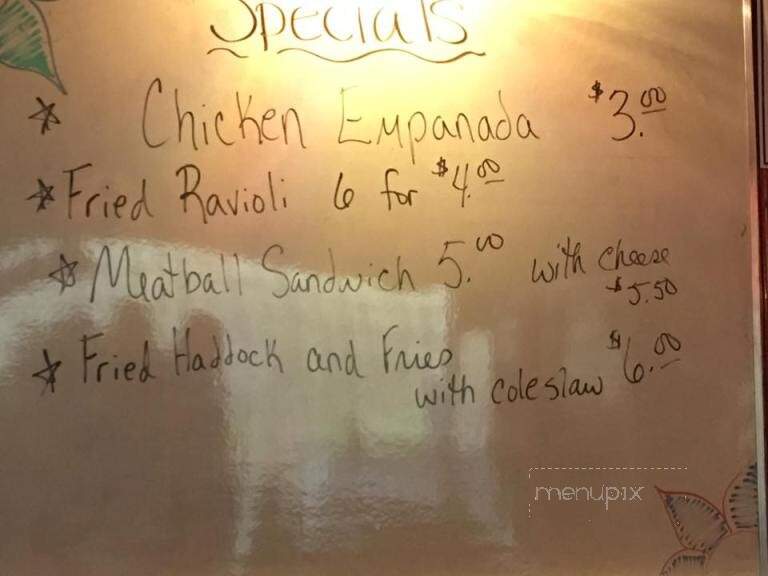 Specials
* Chicken Empanada $3.00
* Fried Ravioli 6 for $4.00
* Meatball Sandwich 5.00 with cheese
$5.50
* Fried Haddock and Fries
with coleslaw $6.00
menupix